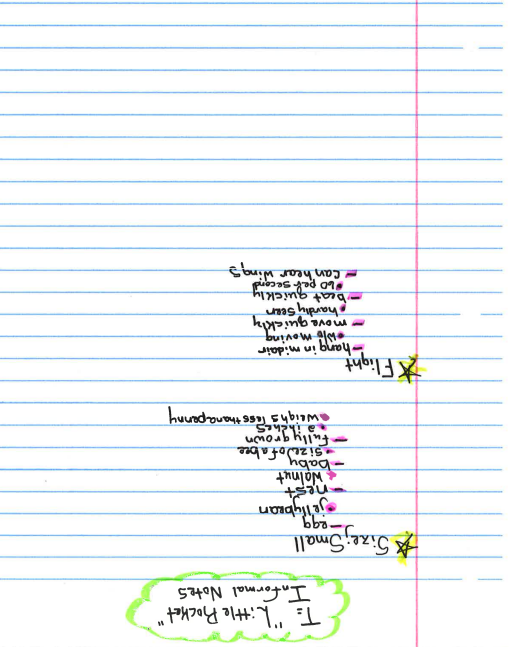 T= "Little Rocket"
Informal Notes
Size: Small
- egg
• jellybean
- nest
• walnut
- baby
• size of a bee
- fully grown
• 2 inches
• weighs less than a penny
Flight
- hang in midair
• w/o moving
- move quickly
• hardly seen
- beat quickly
• 60 per second
- can hear wings